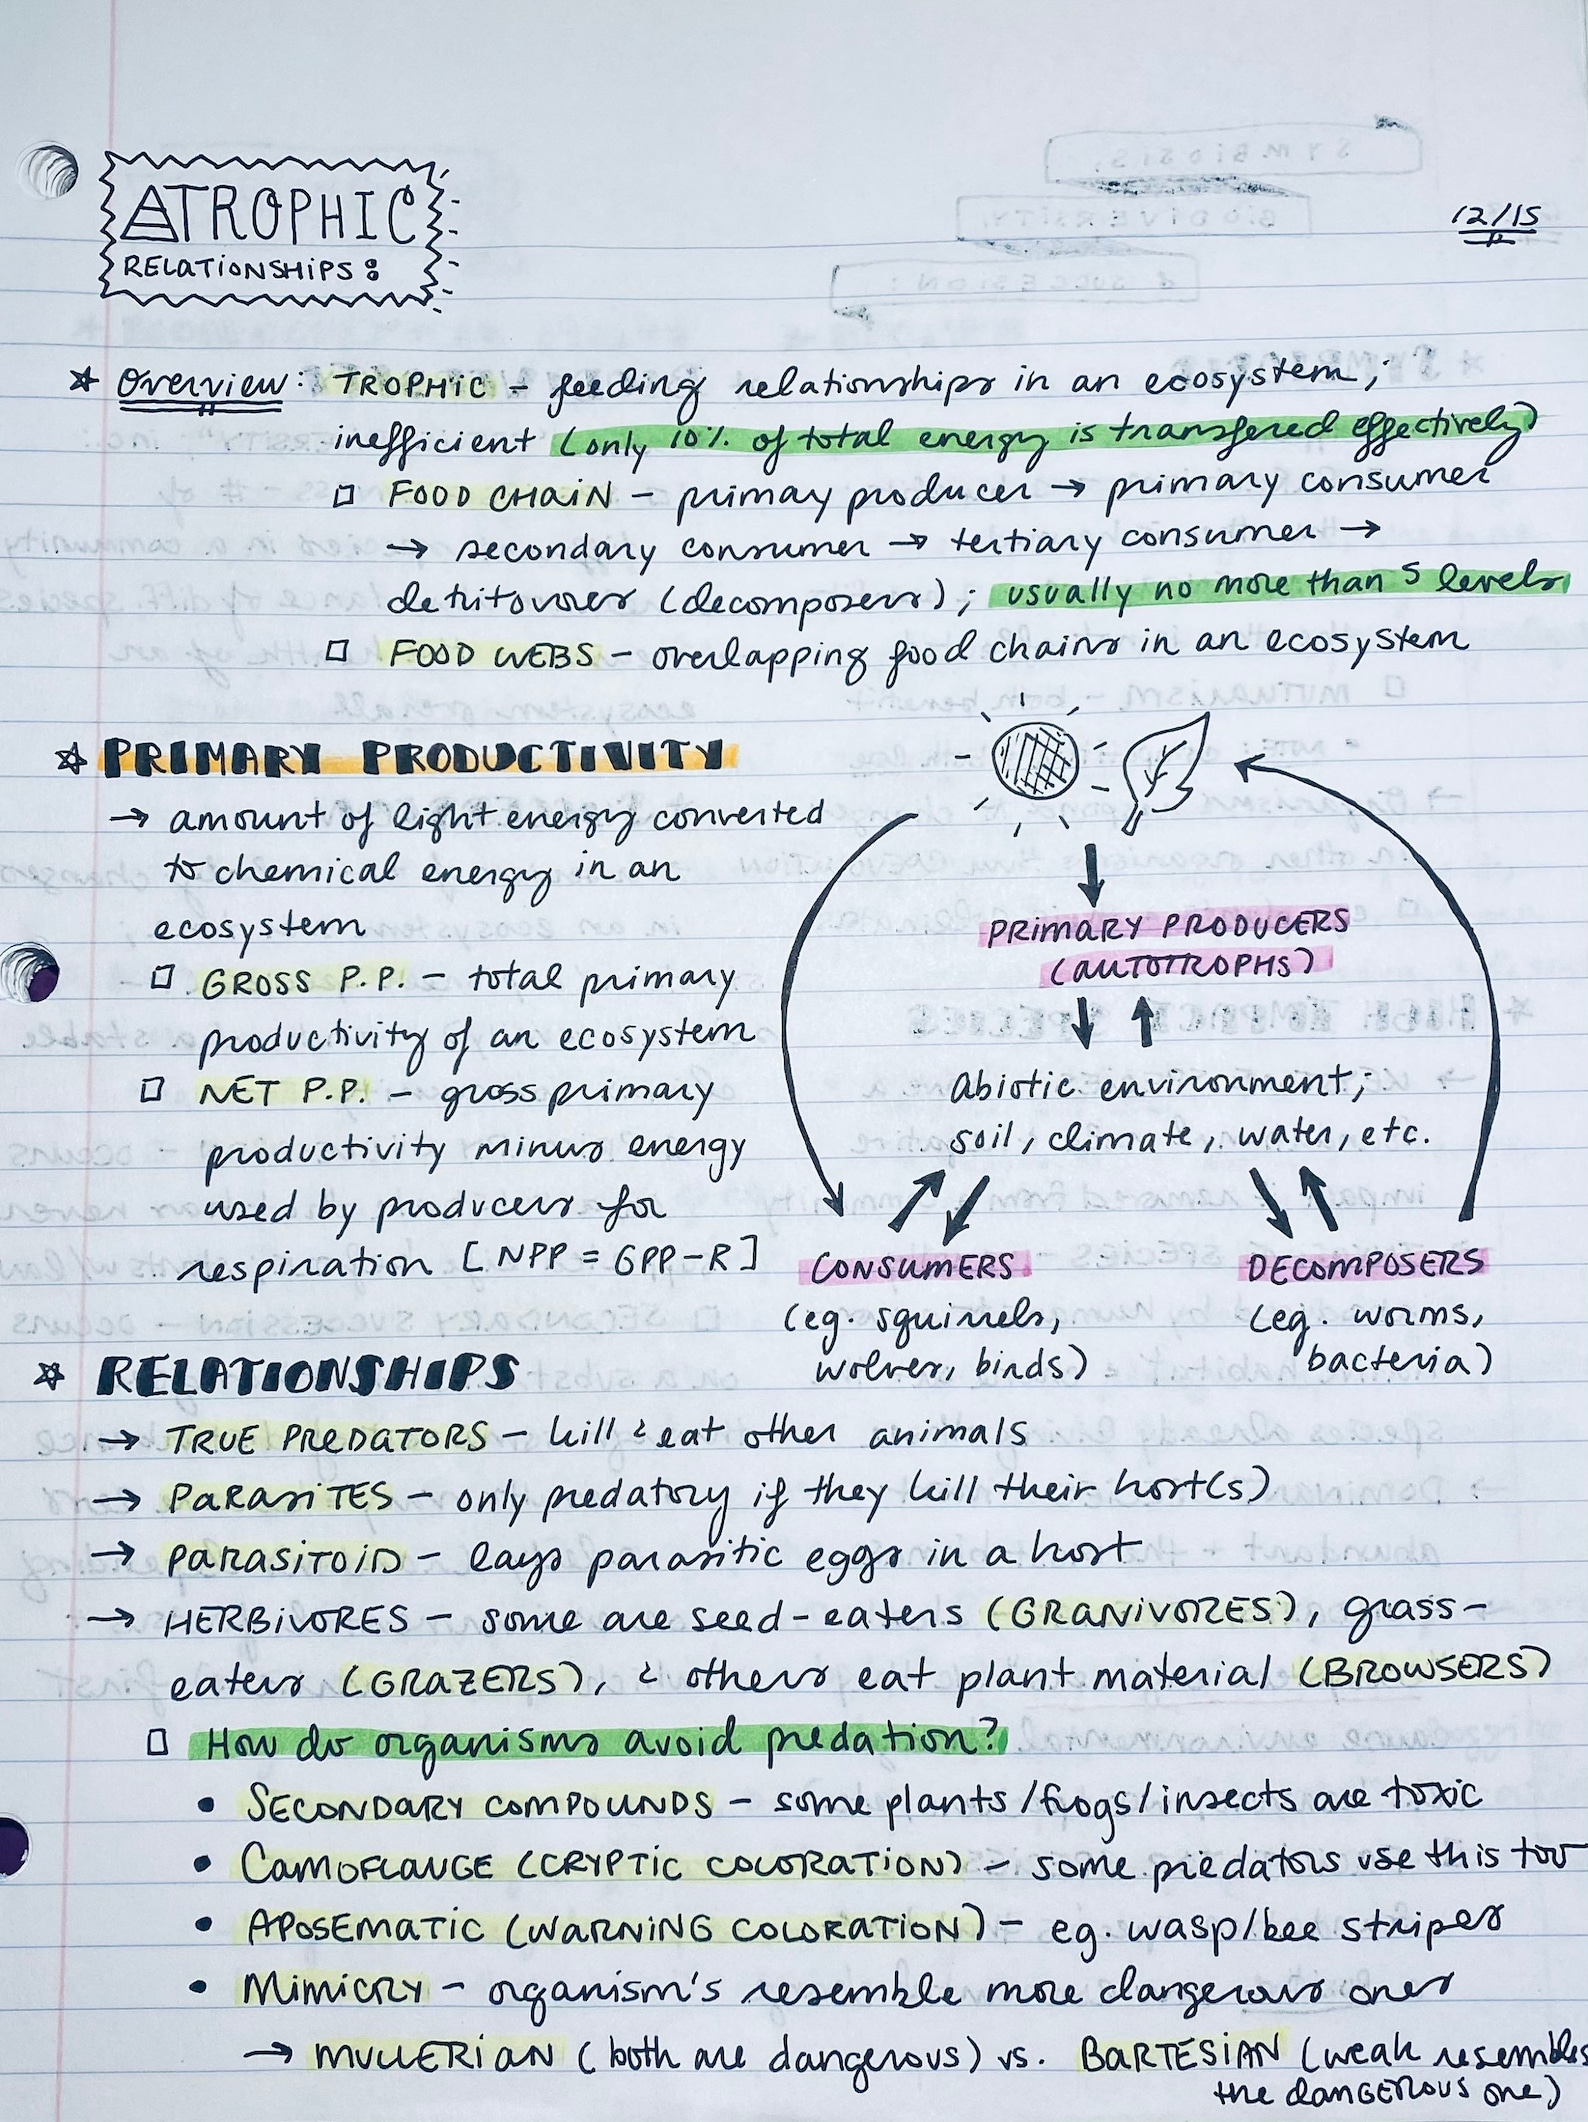 TROPHIC
RELATIONSHIPS:
12/15
Overview: TROPHIC - feeding relationships in an ecosystem;
inefficient (only 10% of total energy is transfered effectively)
FOOD CHAIN - primay producer → primary consumer
→ secondary consumer → tertiary consumer →
detritovores (decomposers); usually no more than 5 levels
FOOD WEBS - overlapping food chains in an ecosystem
PRIMARY PRODUCTIVITY
→ amount of light energy converted
to chemical energy in an
ecosystem
GROSS P.P. - total primary
productivity of an ecosystem
NET P.P. - gross primary
productivity minus energy
used by producers for
respiration [NPP = GPP-R]
PRIMARY PRODUCERS
(AUTOTROPHS)
abiotic environment;
soil, climate, water, etc.
CONSUMERS
(eg. squirrels,
wolves, birds)
DECOMPOSERS
(eg. worms,
bacteria)
RELATIONSHIPS
→ TRUE PREDATORS - kill & eat other animals
→ PARASITES - only predatory if they kill their host(s)
→ PARASITOID - lays parasitic eggs in a host
→ HERBIVORES - some are seed-eaters (GRANIVORES), grass-
eaters (GRAZERS), & others eat plant material (BROWSERS)
How do organisms avoid predation?
• SECONDARY COMPOUNDS - some plants/frogs/insects are toxic
• CAMOFLAUGE (CRYPTIC COLORATION) - some predators use this too
• APOSEMATIC (WARNING COLORATION) - eg. wasp/bee stripes
• MIMICRY - organism's resemble more dangerous ones
→ MULLERIAN (both are dangerous) vs. BARTESIAN (weak resembles
the DANGEROUS one)